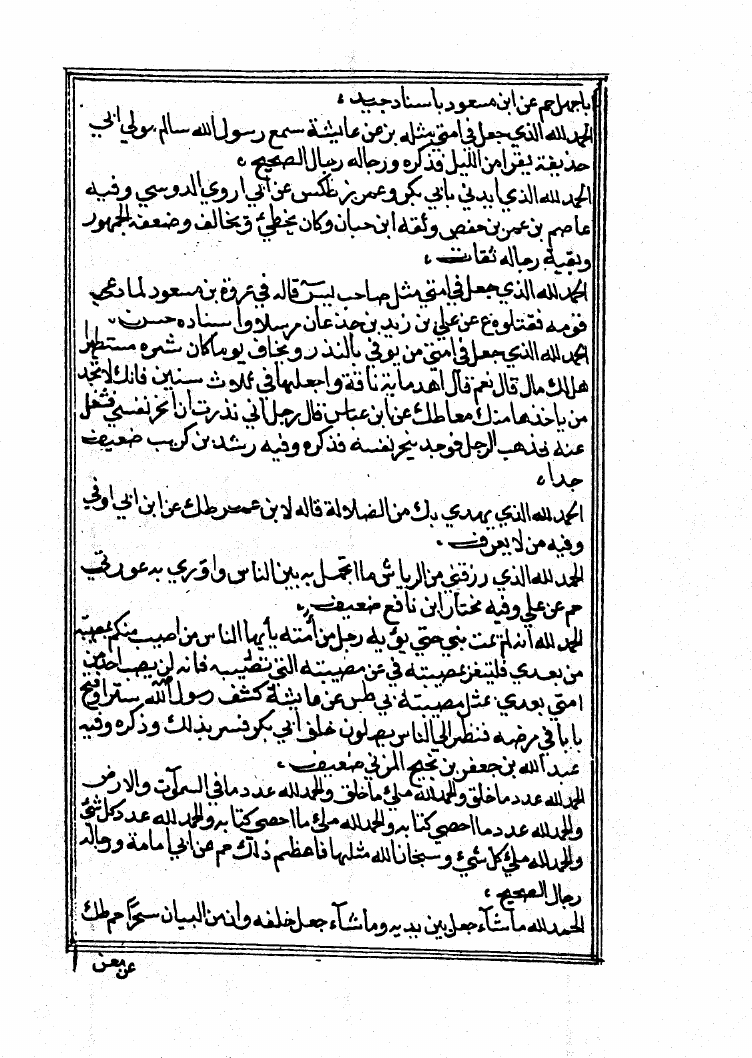 اباجهل حم عن ابن مسعود باسناد جيد ،
الحمد لله الذي جعل في امتي مثله بز عن عايشة سمع رسول الله سالم مولي ابي
حذيفة يقرا من الليل فذكره ورجاله رجال الصحيح ،
الحمد لله الذي ايدني بابي بكر وعمر ز طكس عن ابي اروي الدوسي وفيه
عاصم بن عمر بن حفص وثقه ابن حبان وكان يخطئ ويخالف وضعفه الجمهور
وبقية رجاله ثقات ،
الحمد لله الذي جعل في امتي مثل صاحب يس قاله في عروة بن مسعود لما دعي
قومه فقتلوه ع عن علي بن زيد بن جذعان مرسلا واسناده حسن ،
الحمد لله الذي جعل في امتي من يوفي بالنذر ويخاف يوما كان شره مستطيرا
هل لك مال قال نعم قال اهد ماية ناقة واجعلها في ثلاث سنين فانك لا تجد
من ياخذها منك معا طك عن ابن عباس قال رجل اني نذرت ان انحر نفسي فشغل
عنه فذهب الرجل فوجد ينحر نفسه فذكره وفيه رشد بن كريب ضعيف
جدا ،
الحمد لله الذي يهدي بك من الضلالة قاله لابن عمر طك عن ابن ابي اوفي
وفيه من لا يعرف ،
الحمد لله الذي رزقني من الرياش ما اتجمل به بين الناس واوري به عورتي
حم عن علي وفيه مختار ابن نافع ضعيف ،
الحمد لله انه لم يمت نبي حتي يؤمه رجل من أمته يأيها الناس من اصيب منكم بمصيبة
من بعدي فليتعز بمصيبته في عن مصيبته التي تصيبه فانه لن يصب احد من
امتي بعدي بمثل مصيبته بي طس عن عايشة كشف رسول الله سترا وفتح
بابا في مرضه فنظر الي الناس يصلون خلف أبي بكر فسر بذلك وذكره وفيه
عبد الله بن جعفر بن نجيح المزني ضعيف ،
الحمد لله عدد ما خلق والحمد لله ملئ ما خلق والحمد لله عدد ما في السموآت والارض
والحمد لله عدد ما احصي كتابه والحمد لله ملئ ما احصي كتابه والحمد لله عدد كل شئ
والحمد لله ملئ كل شئ وسبحان الله مثلها فاعظم ذلك حم عن ابي امامة ورجاله
رجال الصحيح ،
الحمد لله ما شآء جعل بين يديه وما شآء جعل خلفه وان من البيان سحرا حم طك
عن معن